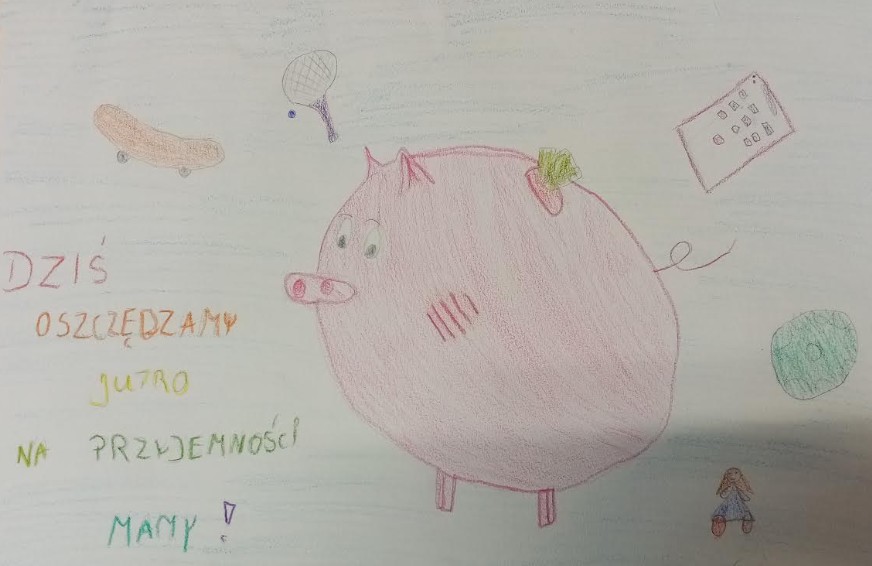 DZIŚ
OSZCZĘDZAMY
JUTRO
NA PRZYJEMNOŚCI
MAMY!